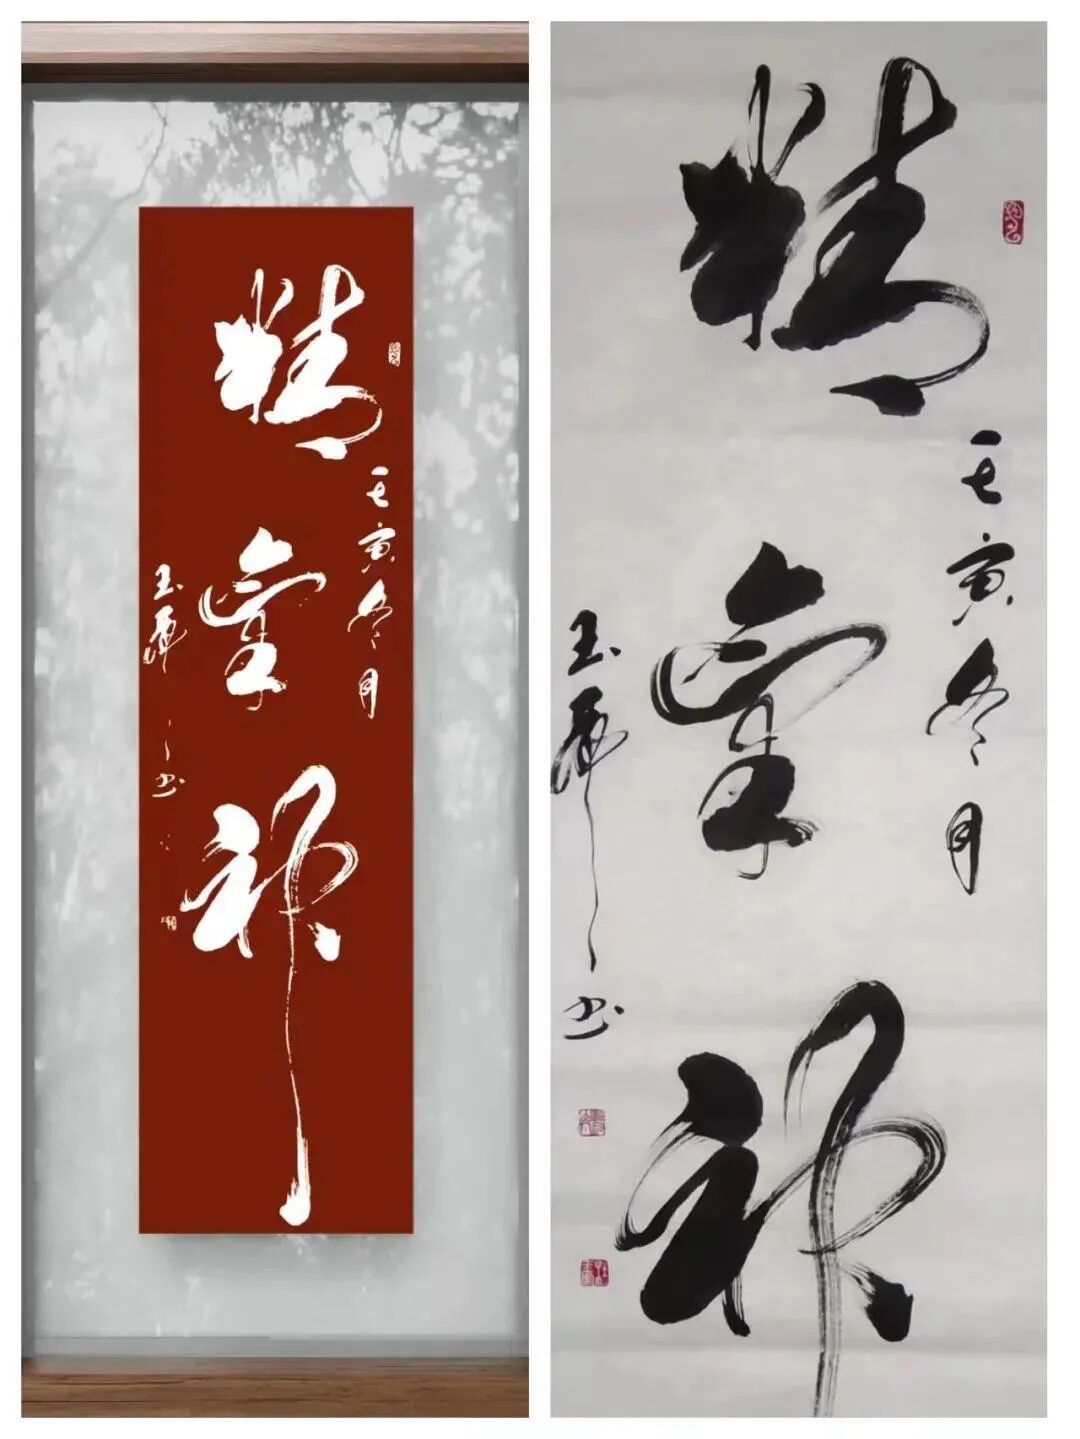 精氣神
壬寅冬月
玉
书
精氣神
壬寅冬月
玉
书